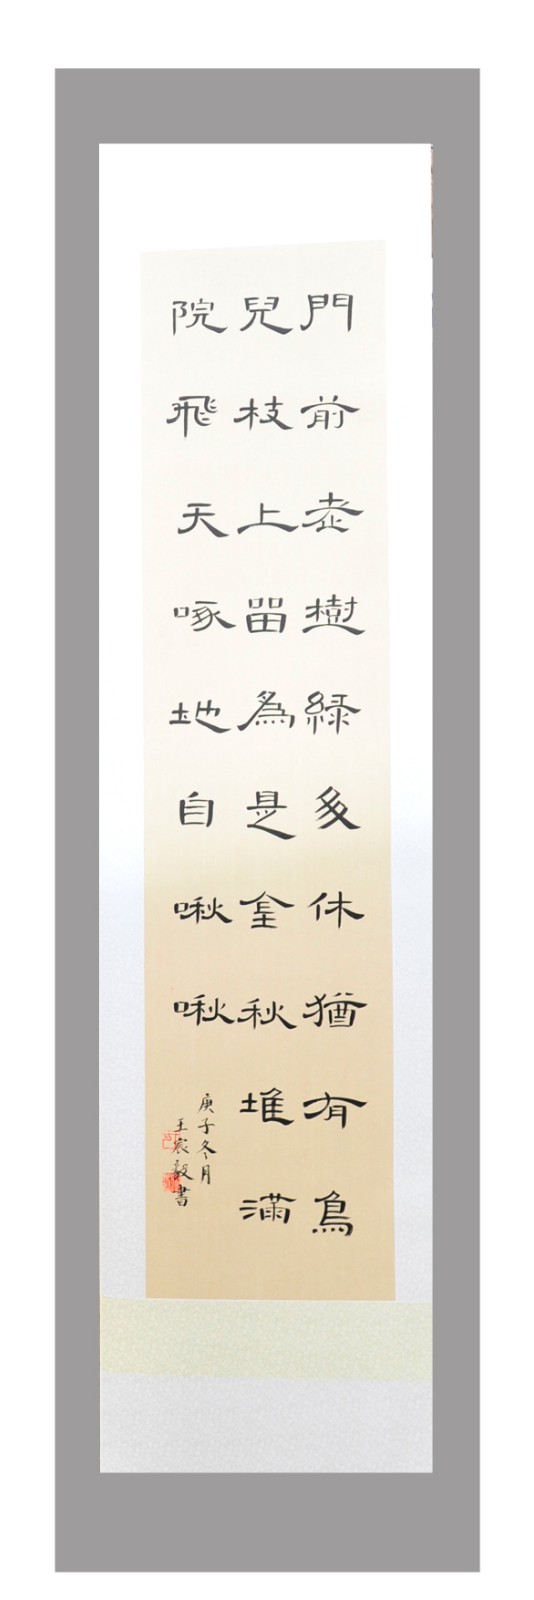 門前老樹綠多休猶有鳥
兒枝上留為是金秋堆滿
院飛天啄地自啾啾
庚子冬月
王宸毅書